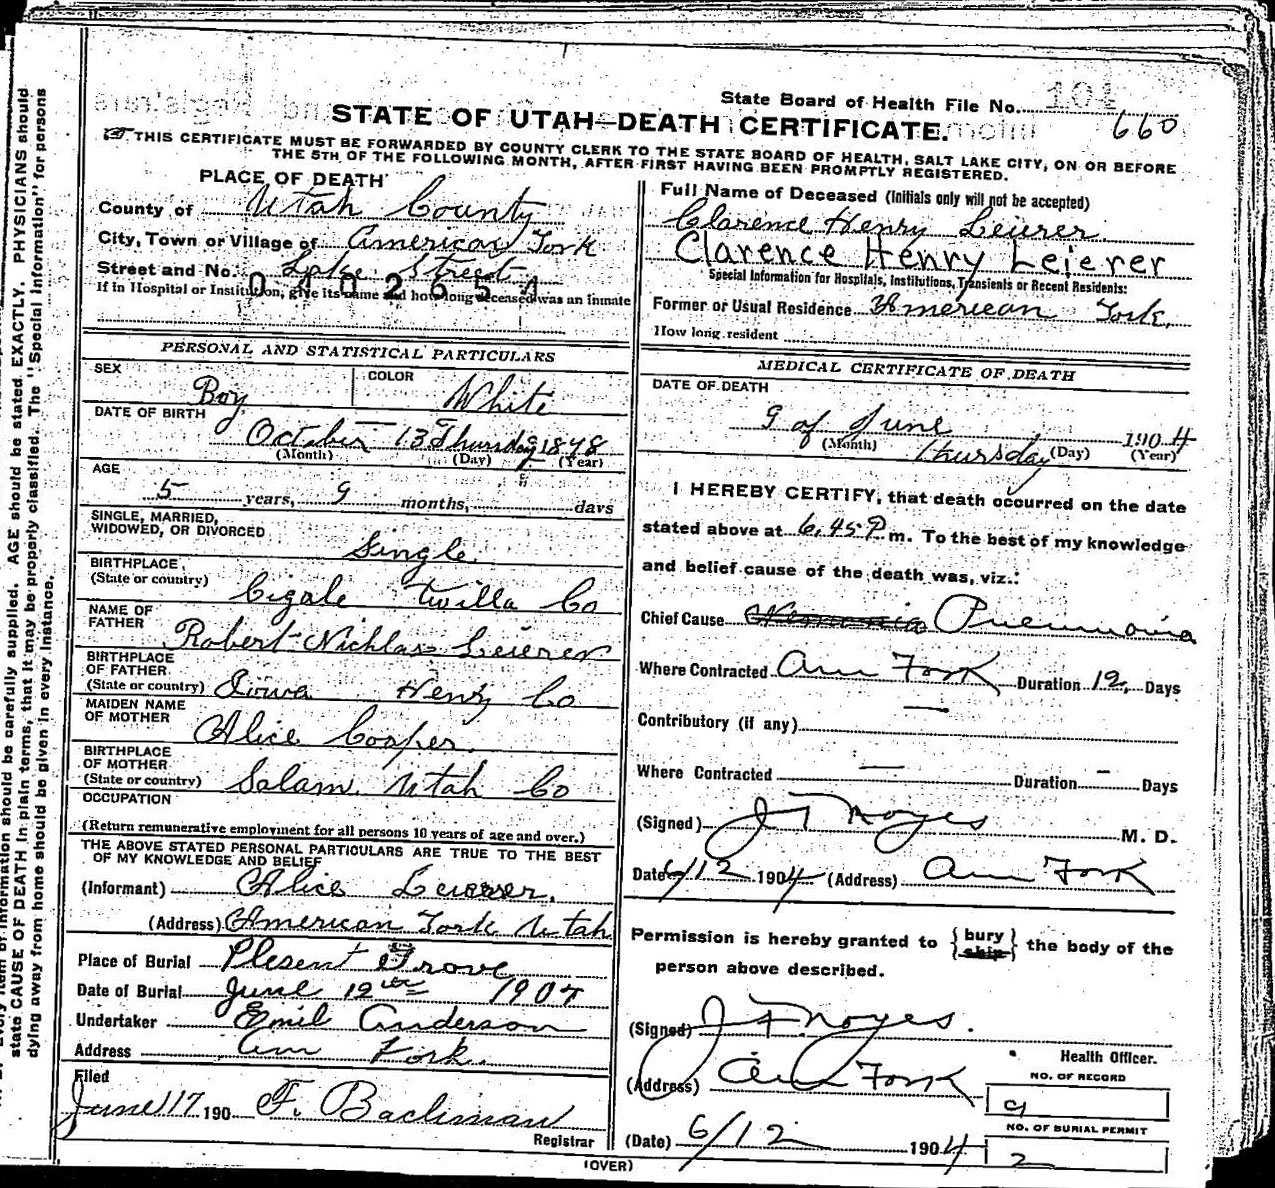 State Board of Health File No. 101
660
STATE OF UTAH—DEATH CERTIFICATE.
THIS CERTIFICATE MUST BE FORWARDED BY COUNTY CLERK TO THE STATE BOARD OF HEALTH, SALT LAKE CITY, ON OR BEFORE
THE 5TH OF THE FOLLOWING MONTH, AFTER FIRST HAVING BEEN PROMPTLY REGISTERED.
PLACE OF DEATH
County of Utah County
City, Town or Village of American Fork
Street and No. Lake Street
If in Hospital or Institution, give its name and how long deceased was an inmate
Full Name of Deceased (Initials only will not be accepted)
Clarence Henry Leierer
Clarence Henry Leierer
Special Information for Hospitals, Institutions, Transients or Recent Residents:
Former or Usual Residence American Fork.
How long resident
PERSONAL AND STATISTICAL PARTICULARS
SEX Boy COLOR White
DATE OF BIRTH
October 13 Thursday 1898
(Month) (Day) (Year)
AGE
5 years, 9 months, days
SINGLE, MARRIED,
WIDOWED, OR DIVORCED
Single
BIRTHPLACE
(State or country) Twilla Co
NAME OF
FATHER Robert Nichlas Leierer
BIRTHPLACE
OF FATHER
(State or country) Iowa Henry Co
MAIDEN NAME
OF MOTHER Alice Cooper
BIRTHPLACE
OF MOTHER
(State or country) Salam Utah Co
OCCUPATION
(Return remunerative employment for all persons 10 years of age and over.)
THE ABOVE STATED PERSONAL PARTICULARS ARE TRUE TO THE BEST
OF MY KNOWLEDGE AND BELIEF
(Informant) Alice Leierer.
(Address) American Fork Utah
Place of Burial Plesent Grove
Date of Burial June 12 1904
Undertaker Emil Anderson
Address Am Fork.
Filed
June 17 190 F. Bachman
Registrar
MEDICAL CERTIFICATE OF DEATH
DATE OF DEATH
9 of June 1904
(Month) Thursday (Day) (Year)
I HEREBY CERTIFY, that death occurred on the date
stated above at 6,45 P m. To the best of my knowledge
and belief cause of the death was, viz.:
Chief Cause Pneumonia
Where Contracted Am Fork Duration 12, Days
Contributory (if any) —
Where Contracted — Duration - Days
(Signed) J F Noyes M. D.
Date 6/12 1904 (Address) Am Fork
Permission is hereby granted to {bury ship} the body of the
person above described.
(Signed) J F Noyes.
Health Officer.
(Address) Am Fork
NO. OF RECORD
9
NO. OF BURIAL PERMIT
2
(Date) 6/12 1904
(OVER)
information should be carefully supplied. AGE should be stated EXACTLY. PHYSICIANS should
state CAUSE OF DEATH in plain terms, that it may be properly classified. The "Special Information" for persons
dying away from home should be given in every instance.